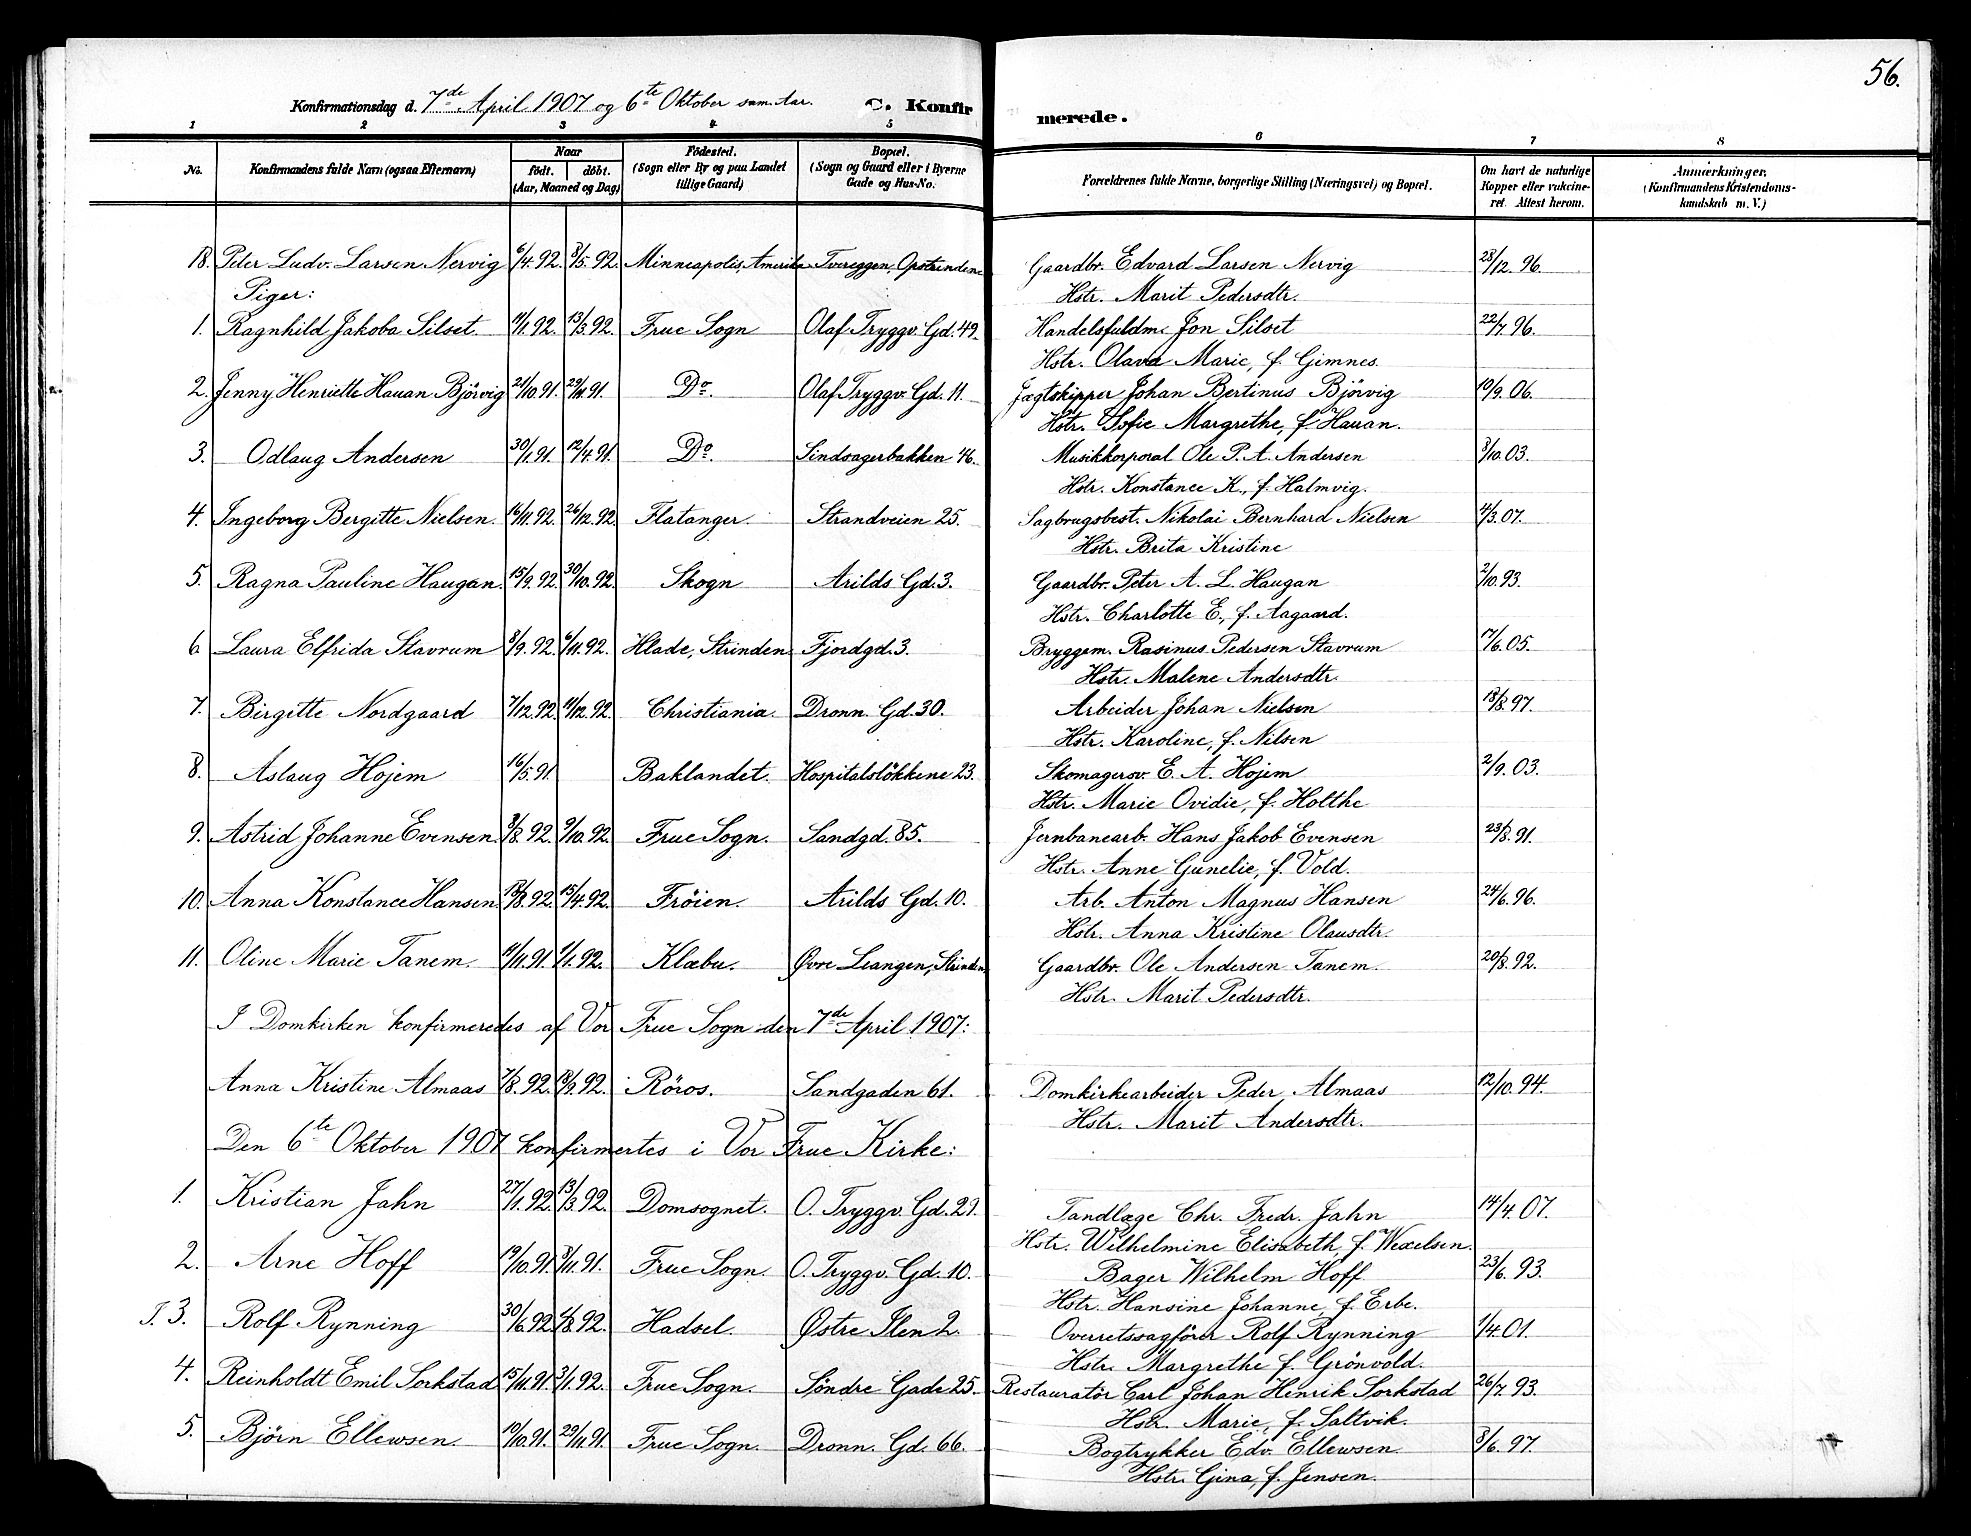 56.
Konfirmationsdag d. 7de April 1907 og 6te Oktober sam. Aar. C. Konfirmerede.
1 2 3 4 5 6 7 8
No. Konfirmandens fulde Navn (ogsaa Efternavn) Naar födt. döbt. (Aar, Maaned og Dag) Födested. (Sogn eller By og paa Landet tillige Gaard) Bopæl. (Sogn og Gaard eller i Byerne Gade og Hus-No. Forældrenes fulde Navne, borgerlige Stilling (Næringsvei) og Bopæl. Om havt de naturlige Kopper eller vakcineret. Attest herom. Anmærkninger. (Konfirmandens Kristendomskundskab m. V.)
18. Peder Ludv. Larsen Nervig 6/4.92. 8/5.92. Minneapolis, Amerika Tvereggen, Opstrindene Gaardbr. Edvard Larsen Nervig 28/12.96.
Piger: Hstr. Marit Pedersdtr.
1. Ragnhild Jakoba Silset. 11/1.92. 13/3.92. Frue Sogn Olaf Tryggv. Gd. 49. Handelsfuldm. Jon Silset 22/7.96.
Hstr. Olava Marie, f. Gimnes.
2. Jenny Henriette Hauan Björvig 21/10.91. 29/11.91. Do. Olaf Tryggv. Gd. 11. Jægtskipper Johan Bertinus Björvig 19/9.06.
Hstr. Sofie Margrethe, f. Hauan.
3. Odlaug Andersen 30/1.91. 12/4.91. Do. Sindsagerbakken 46. Musikkorporal Ole P. A. Andersen 8/10.03.
Hstr. Konstance K., f. Halmvig.
4. Ingeborg Bergitte Nielsen. 16/11.92. 26/12.92. Flatanger. Strandveien 25. Sagbrugsbest. Nikolai Bernhard Nielsen 4/3.07.
Hstr. Brita Kristine
5. Ragna Pauline Haugan. 15/9.92. 30/10.92. Skogn Arilds Gd. 3. Gaardbr. Peter A. L. Haugan 2/10.93.
Hstr. Charlotte E., f. Aagaard.
6 Laura Elfrida Stavrum 8/9.92. 6/11.92. Hlade, Strinden Fjordgd. 3. Bryggem. Rasinus Pedersen Stavrum 17/6.05.
Hstr. Malene Andersdtr.
7. Birgitte Nordgaard 7/12.92. 11/12.92. Christiania. Dronn. Gd. 30. Arbeider Johan Nielsen 18/8.97.
Hstr. Karoline, f. Nilsen
8. Aslaug Hojem 16/5.91. Baklandet. Hospitalslökkene 23. Skomagersv. E. A. Hojem 2/9.03.
Hstr. Marie Ovidie, f. Holthe
9. Astrid Johanne Evensen. 8/8.92. 9/10.92. Frue Sogn. Sandgd. 85. Jernbanearb. Hans Jakob Evensen 23/8.91.
Hstr. Anne Gunelie, f. Vold.
10. Anna Konstance Hansen 92. 15/4.92. Fröien. Arilds Gd. 10. Arb. Anton Magnus Hansen 24/6.96.
Hstr. Anna Kristine Olausdtr.
11. Oline Marie Tanem. 11/11.91. 1/1.92. Klæbu. Øvre Leangen, Strinden Gaardbr. Ole Andersen Tanem. 20/8.92.
Hstr. Marit Pedersdtr.
I Domkirken konfirmeredes af Vor Frue Sogn den 7de April 1907:
Anna Kristine Almaas 7/8.92. 18/9.92. Röros. Sandgaden 61. Domkirkearbeider Peder Almaas 12/10.94.
Hstr. Marit Andersdtr.
Den 6te Oktober 1907 konfirmertes i Vor Frue Kirke:
1. Kristian Jahn 27/1.92. 13/3.92. Domsognet. O. Tryggv. Gd. 29. Tandlæge Chr. Fredr. Jahn 14/4.07.
Hstr. Wilhelmine Elisabeth, f. Wexelsen.
2. Arne Hoff 19/10.91. 8/11.91. Frue Sogn. O. Tryggv. Gd. 10. Bager Wilhelm Hoff 23/6.93.
Hstr. Hansine Johanne, f. Erbe.
3. Rolf Rynning 30/6.92. 4/8.92. Hadsel. Østre Ilen 2. Overretssagförer Rolf Rynning 1/4.01.
Hstr. Margrethe f. Grönvold.
4. Reinholdt Emil Sorkstad 15/11.91. 3/1.92. Frue Sogn. Söndre Gade 25. Restauratör Carl Johan Henrik Sorkstad 26/7.93.
Hstr. Marie, f. Saltvik.
5. Björn Ellewsen. 19/10.91. 29/11.91. Frue Sogn. Dronn. Gd. 66. Bogtrykker Edv. Ellewsen 8/6.97.
Hstr. Gina, f. Jensen.